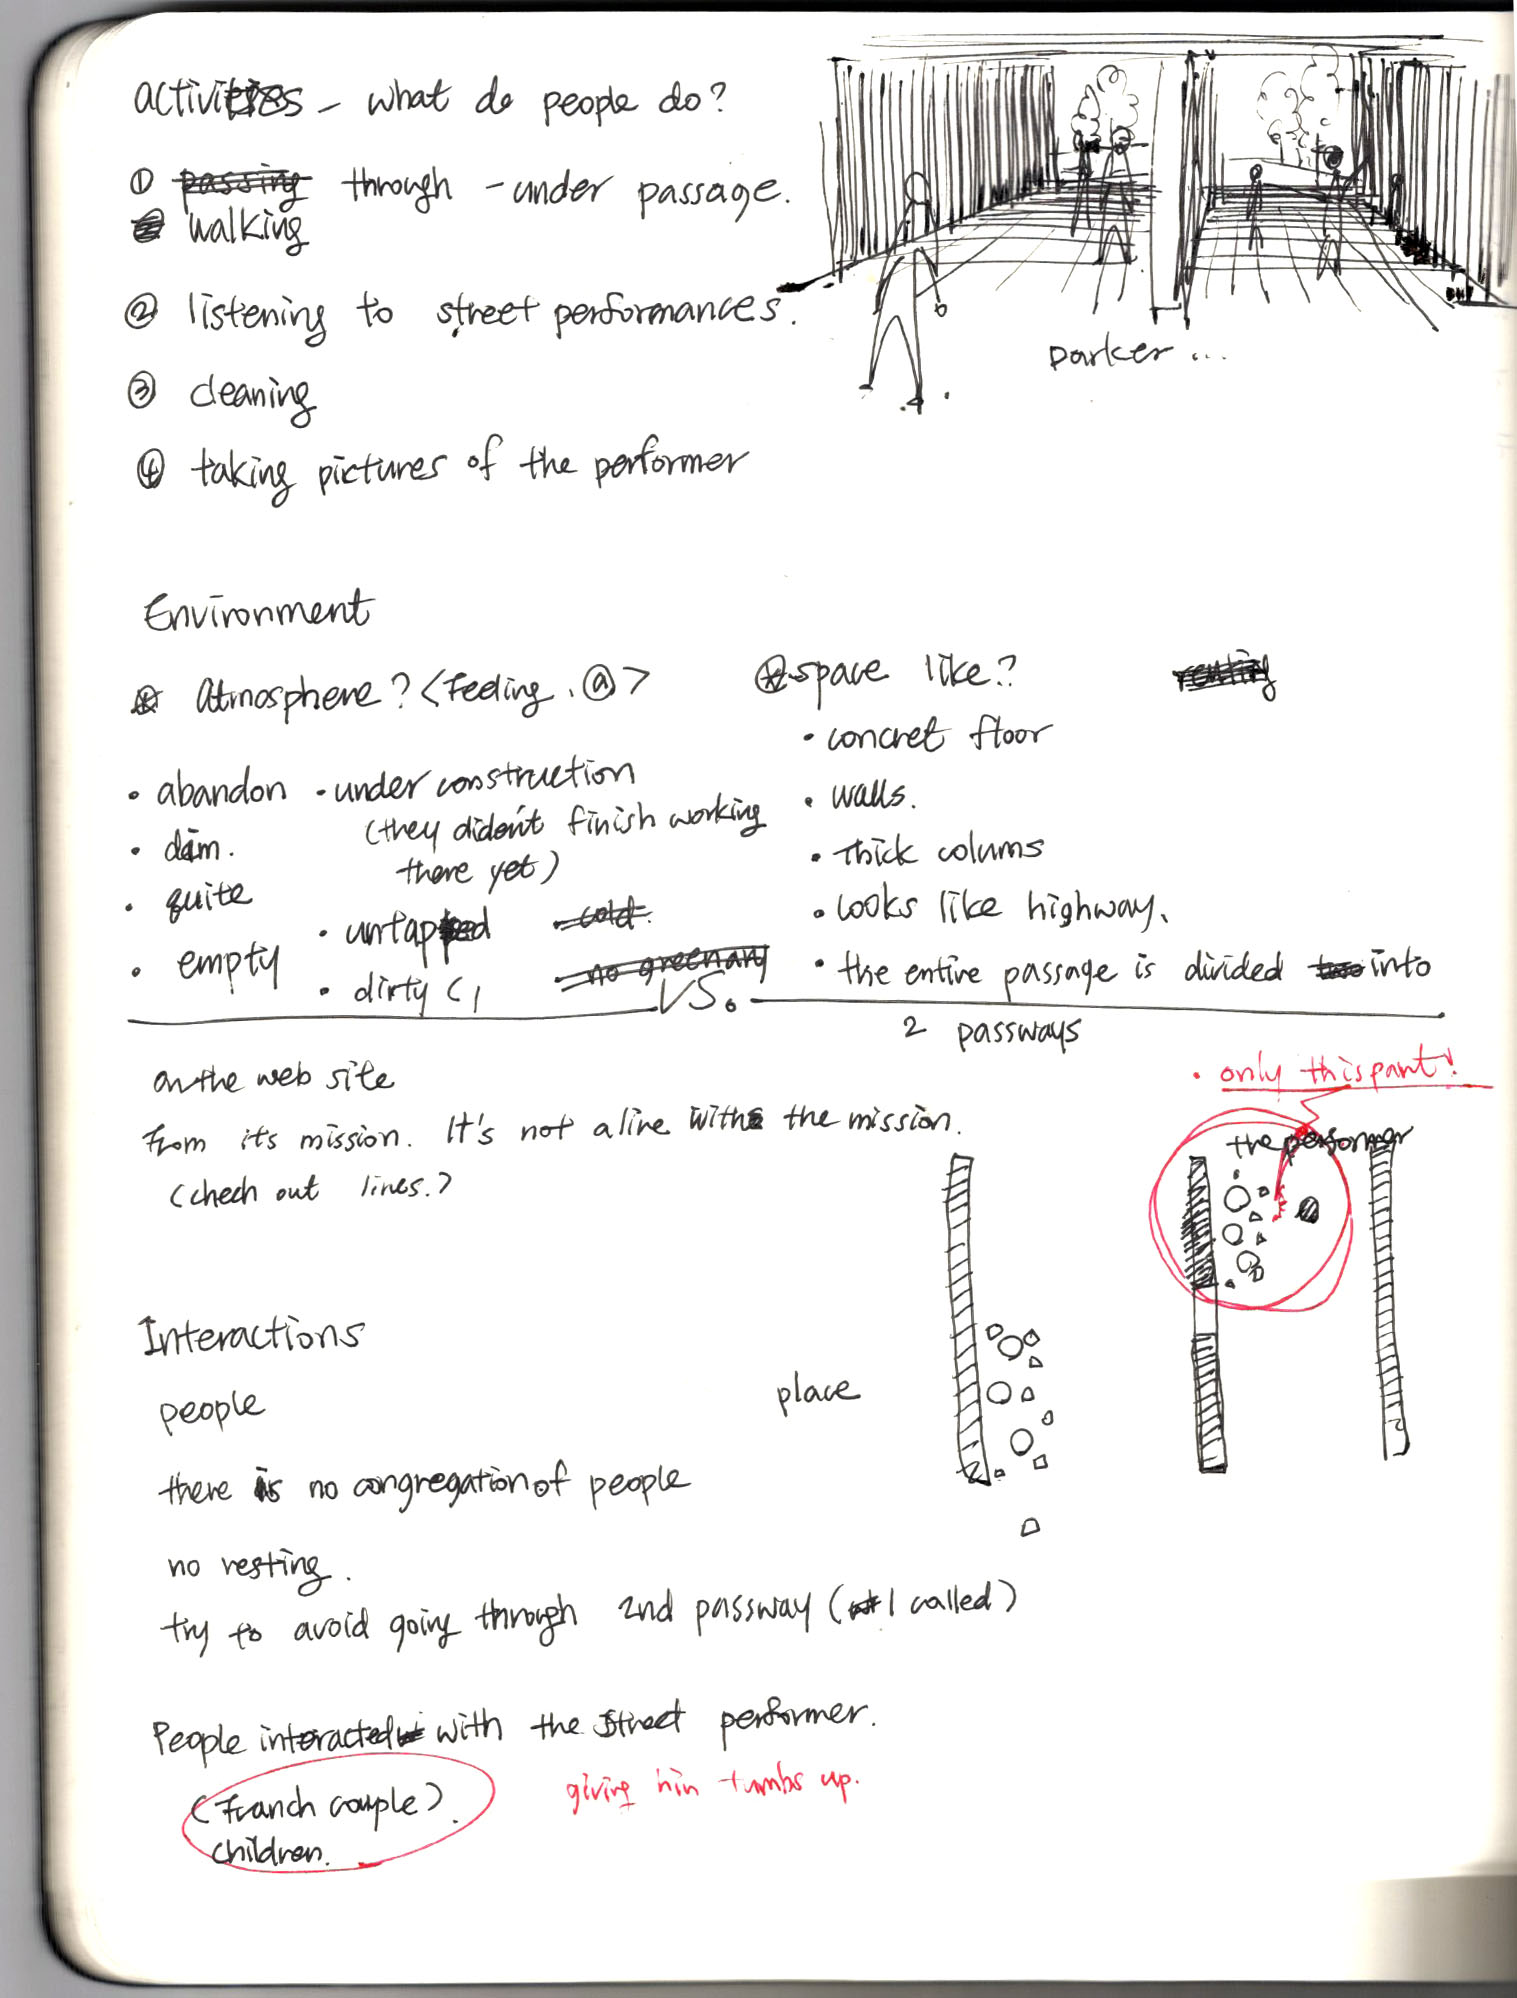 activities - what do people do?
① passing through - under passage.
walking
② listening to street performances.
③ cleaning
④ taking pictures of the performer
Darker ...
Environment
Atmosphere? <feeling. @>
• abandon
• dim.
• quite
• empty
• under construction
(they didn't finish working
there yet)
• untapped
• dirty (,
• cold.
• no greenary
space like?
• concret floor
• walls.
• thick colums
• looks like highway.
• the entire passage is divided into
2 passways
VS.
on the web site
from its mission. It's not alive with the mission.
(chech out lines.)
• only this part!
the performer
Interactions
people
place
there is no congregation of people
no resting.
try to avoid going through 2nd passway (I called)
People interacted with the street performer.
(Franch couple).
children.
giving hin tumbs up.